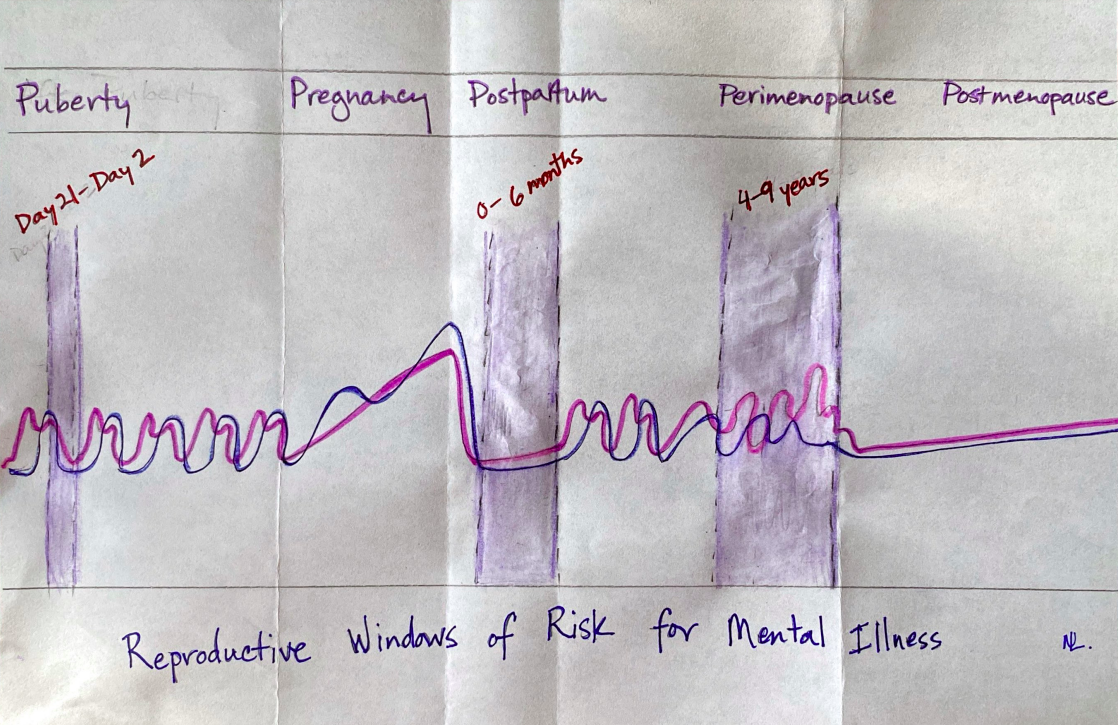 Puberty Pregnancy Postpartum Perimenopause Postmenopause
Day 21-Day 2 0-6 months 4-9 years
Reproductive Windows of Risk for Mental Illness NL.